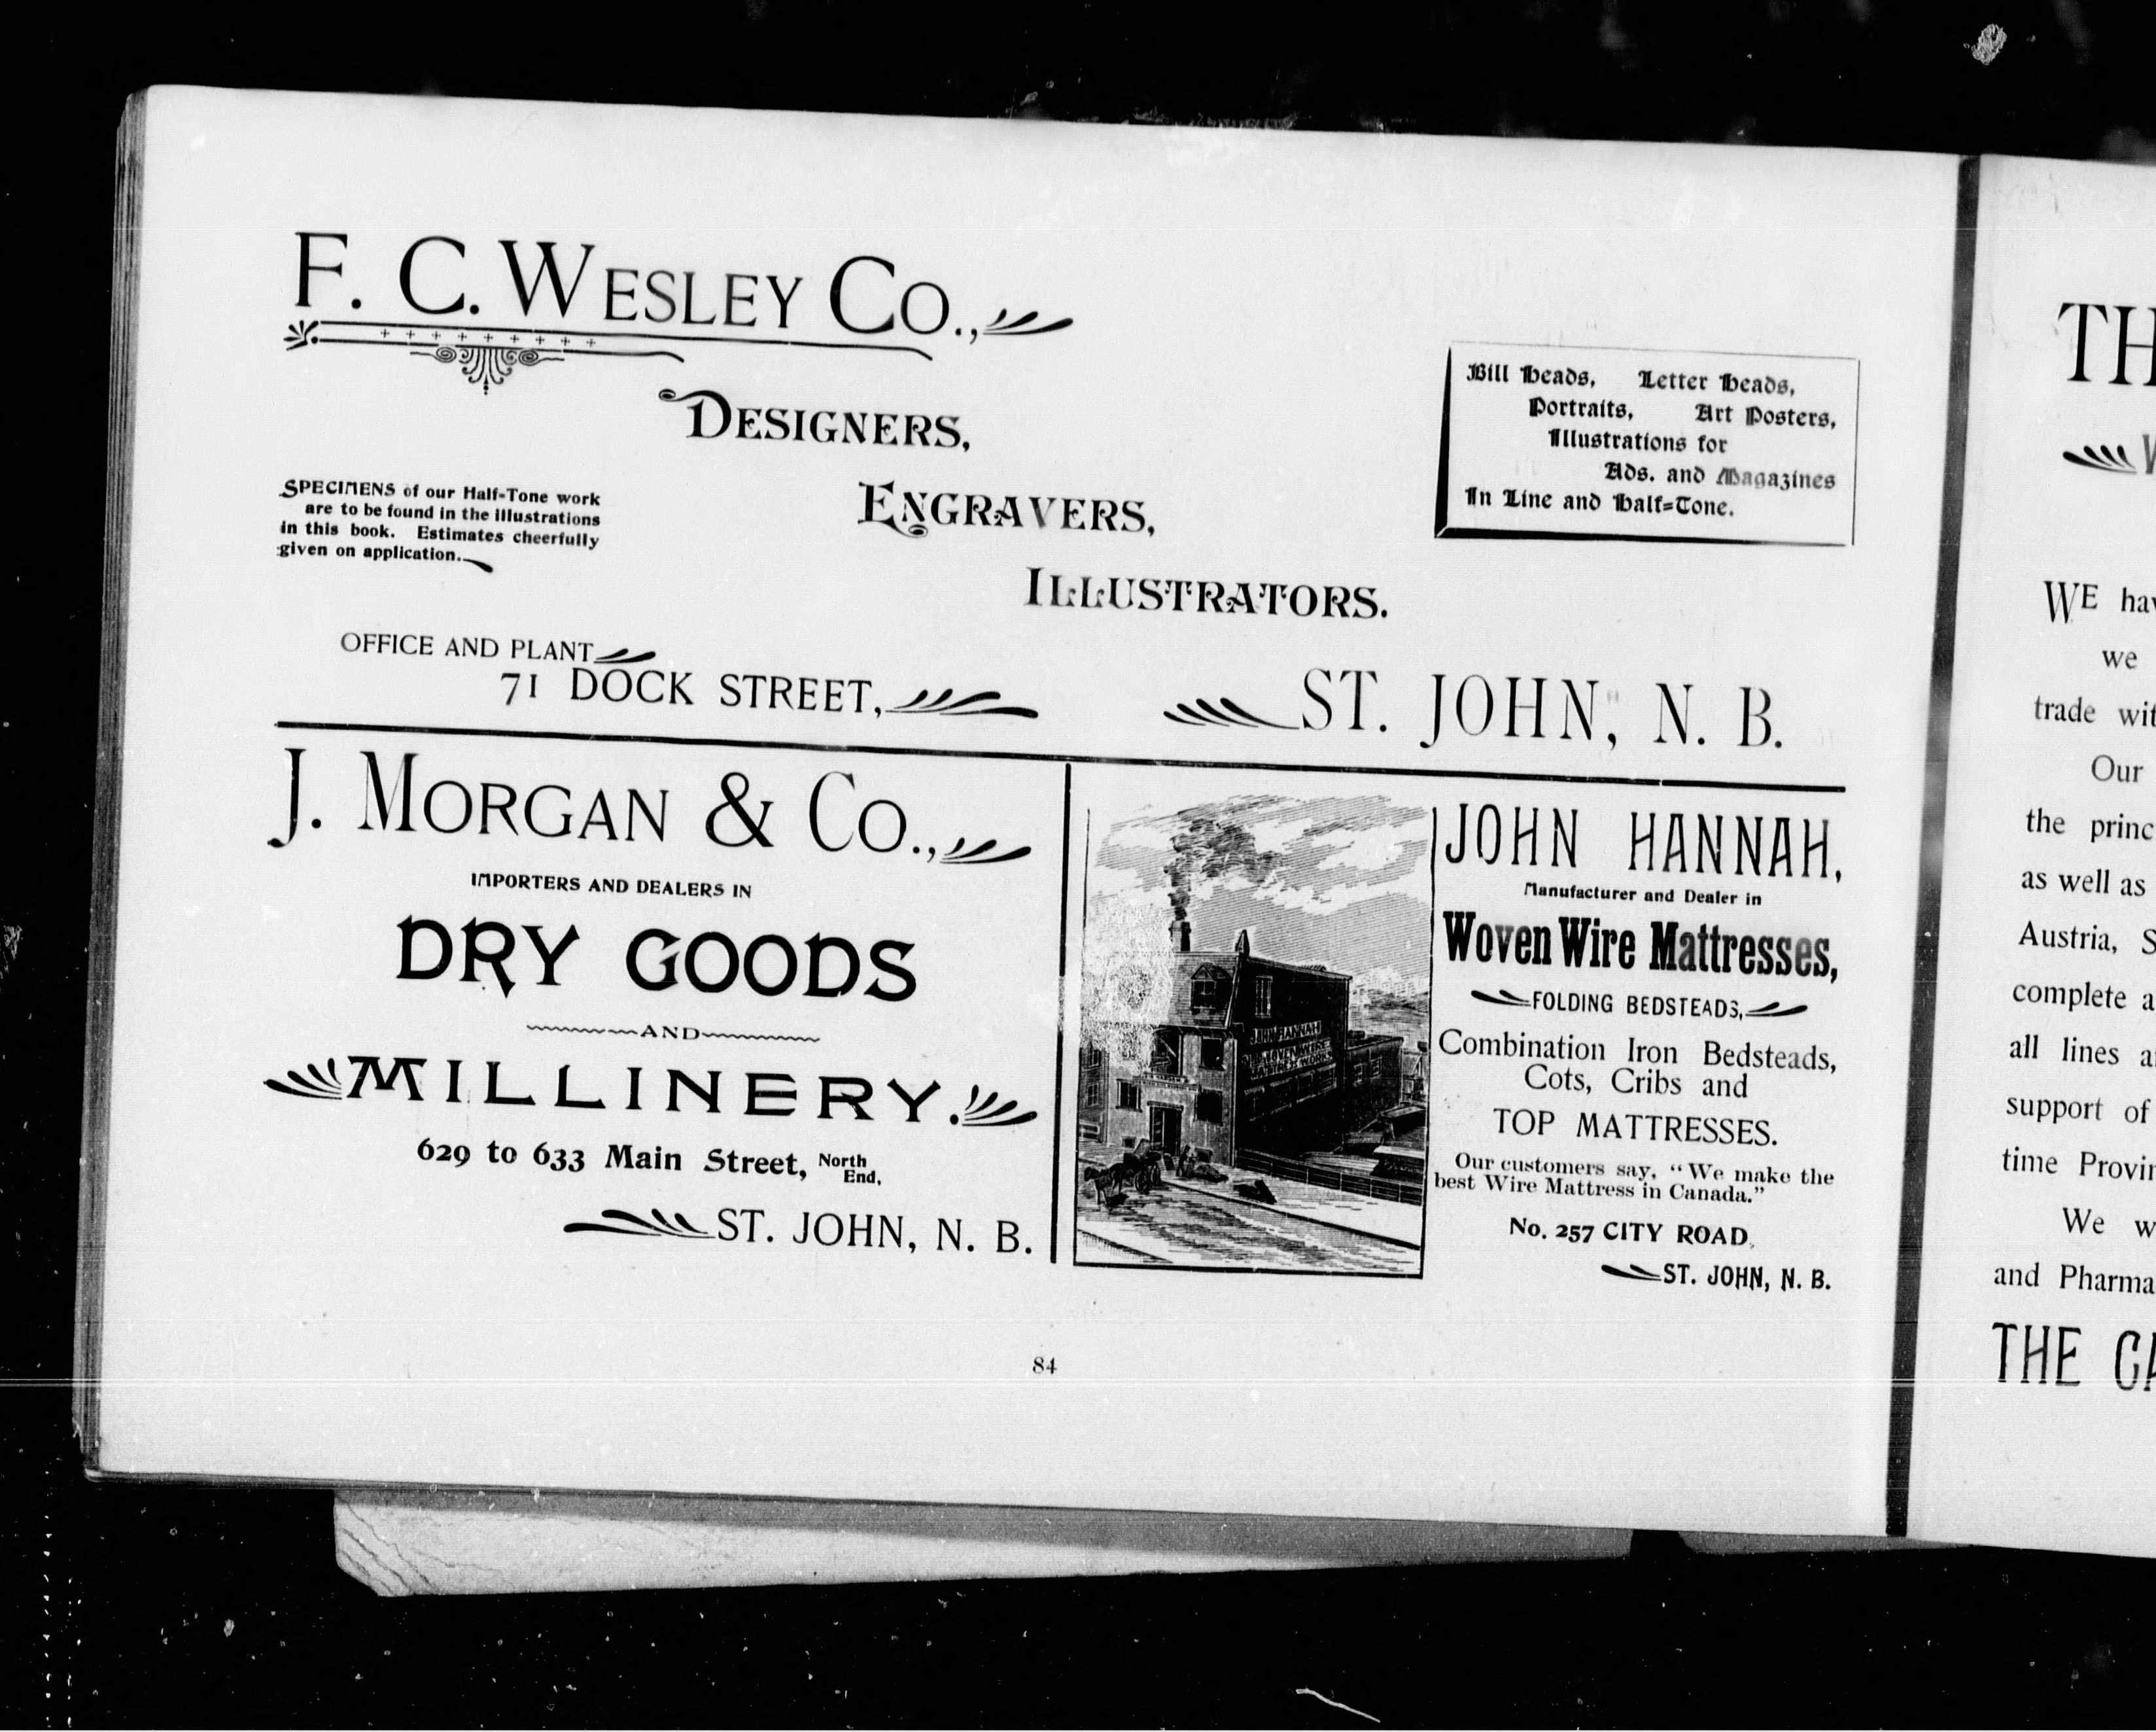 F. C. WESLEY CO.,
DESIGNERS,
ENGRAVERS,
ILLUSTRATORS.
SPECIMENS of our Half-Tone work
are to be found in the illustrations
in this book. Estimates cheerfully
given on application.
Bill Heads, Letter Heads,
Portraits, Art Posters,
Illustrations for
Ads. and Magazines
In Line and Half-Tone.
OFFICE AND PLANT
71 DOCK STREET, ST. JOHN, N. B.
J. MORGAN & CO.,
IMPORTERS AND DEALERS IN
DRY GOODS
AND
MILLINERY.
629 to 633 Main Street, North End,
ST. JOHN, N. B.
JOHN HANNAH
WOVEN WIRE
MATTRESS WORKS
JOHN HANNAH,
Manufacturer and Dealer in
Woven Wire Mattresses,
FOLDING BEDSTEADS,
Combination Iron Bedsteads,
Cots, Cribs and
TOP MATTRESSES.
Our customers say, “We make the
best Wire Mattress in Canada.”
No. 257 CITY ROAD,
ST. JOHN, N. B.
84
TH
WE hav
we
trade wit
Our
the princ
as well as
Austria, S
complete a
all lines a
support of
time Provin
We w
and Pharma
THE CA